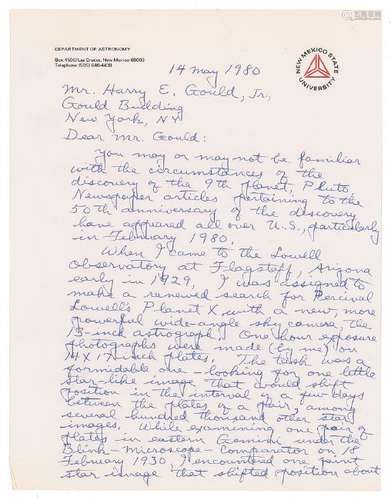 DEPARTMENT OF ASTRONOMY
Box 4500/Las Cruces, New Mexico 88003
Telephone (505) 646-4438
NEW MEXICO STATE UNIVERSITY
14 May 1980
Mr. Harry E. Gould, Jr,
Gould Building
New York, NY
Dear Mr. Gould:
You may or may not be familiar
with the circumstances of the
discovery of the 9th planet, Pluto
Newspaper articles pertaining to the
50th anniversary of the discovery
have appeared all over U.S., particularly
in February 1980.
When I came to the Lowell
Observatory at Flagstaff, Arizona
early in 1929, I was assigned to
make a renewed search for Percival
Lowell's Planet X with a new, more
powerful wide-angle sky camera, the
13-inch astrograph. One hour exposure
photographs were made (by me) on
14 x 17-inch plates. The task was a
formidable one - looking for one little
star-like image that would shift
position in the interval of a few days
between the plates of a pair, among
several hundred thousand other star
images. While examining one pair of
plates in eastern Gemini under the
Blink-Microscope-Comparator on 18
February 1930, I encountered one faint
star image that shifted position about